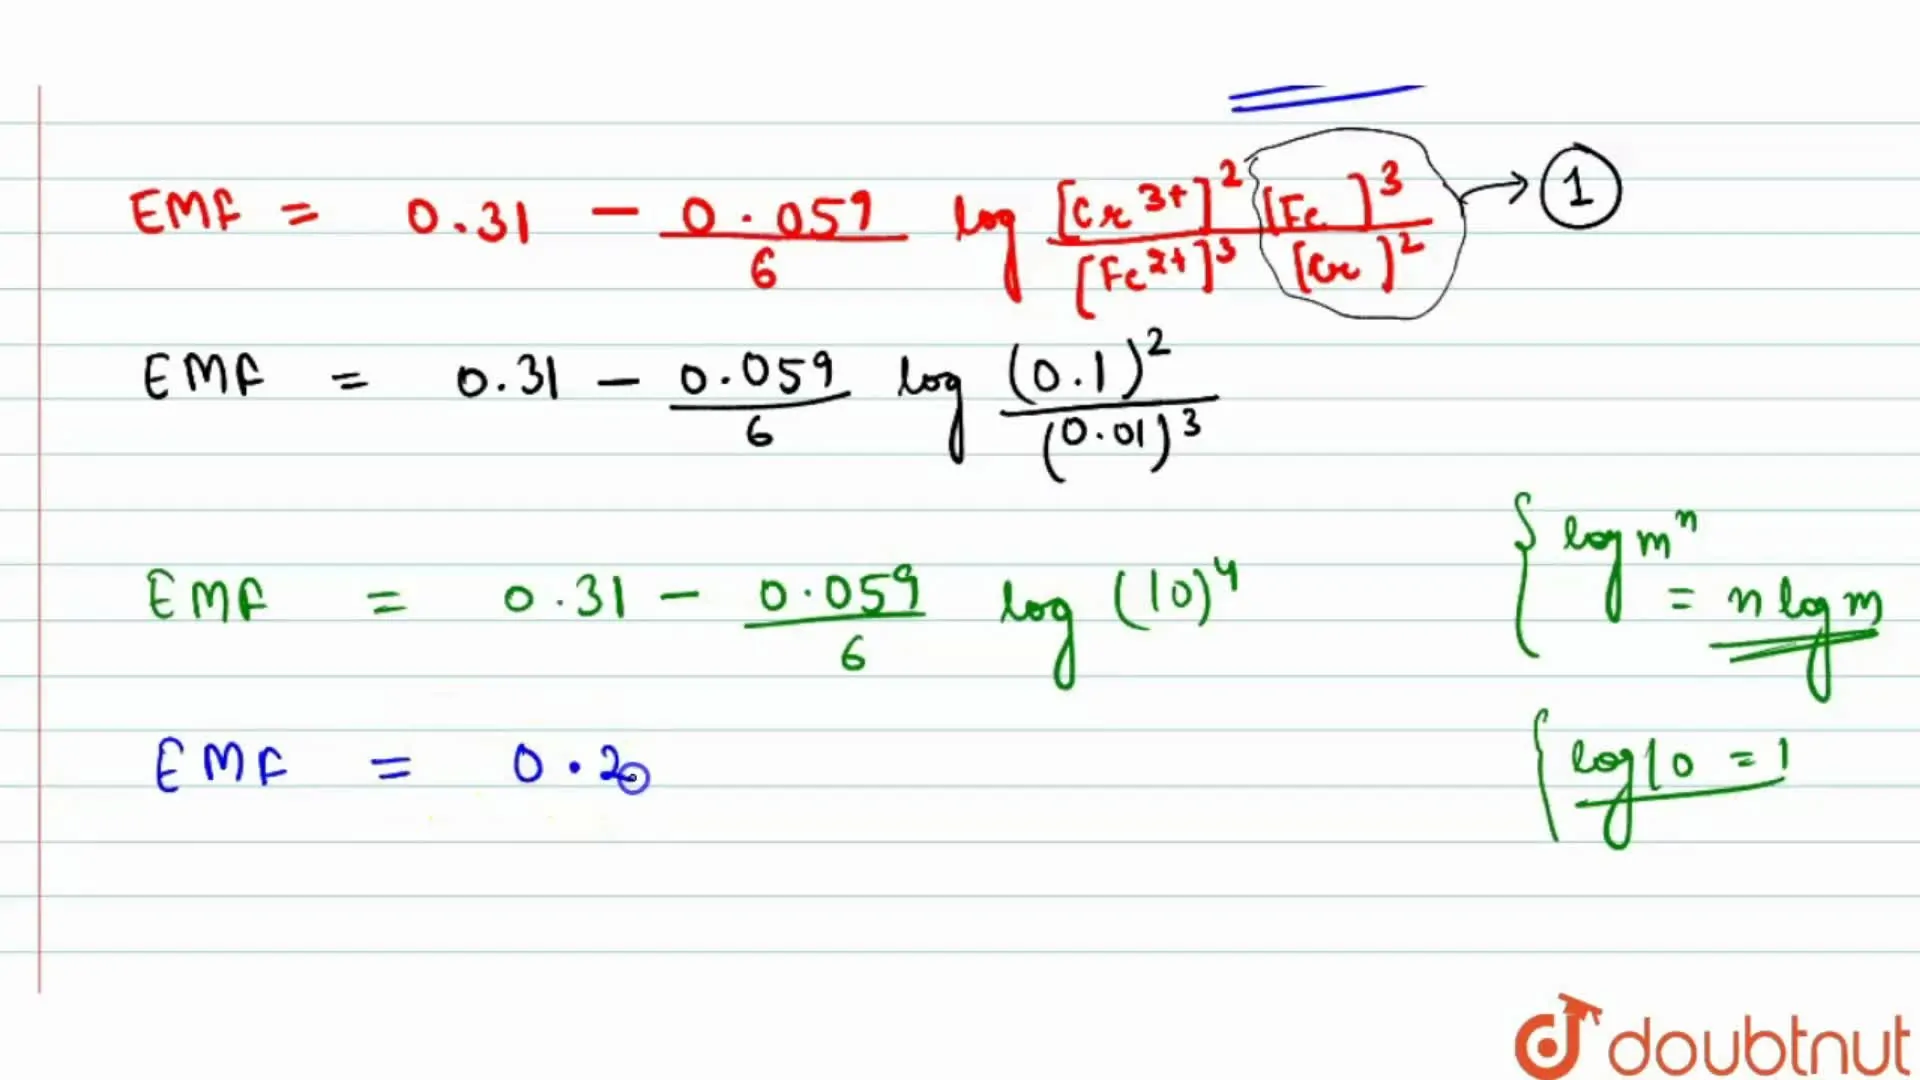 EMF = 0.31 - 0.059/6 log [Cr3+]^2 [Fe]^3 / [Fe2+]^3 [Cr]^2 → 1
EMF = 0.31 - 0.059/6 log (0.1)^2 / (0.01)^3
EMF = 0.31 - 0.059/6 log (10)^4
{ log m^n
= n log m
EMF = 0.2
{ log 10 = 1
doubtnut